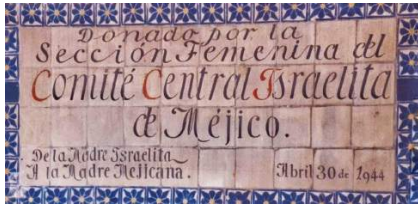 Donado por la
Sección Femenina del
Comité Central Israelita
de Méjico.
De la Madre Israelita
A la Madre Mejicana.
Abril 30 de 1944